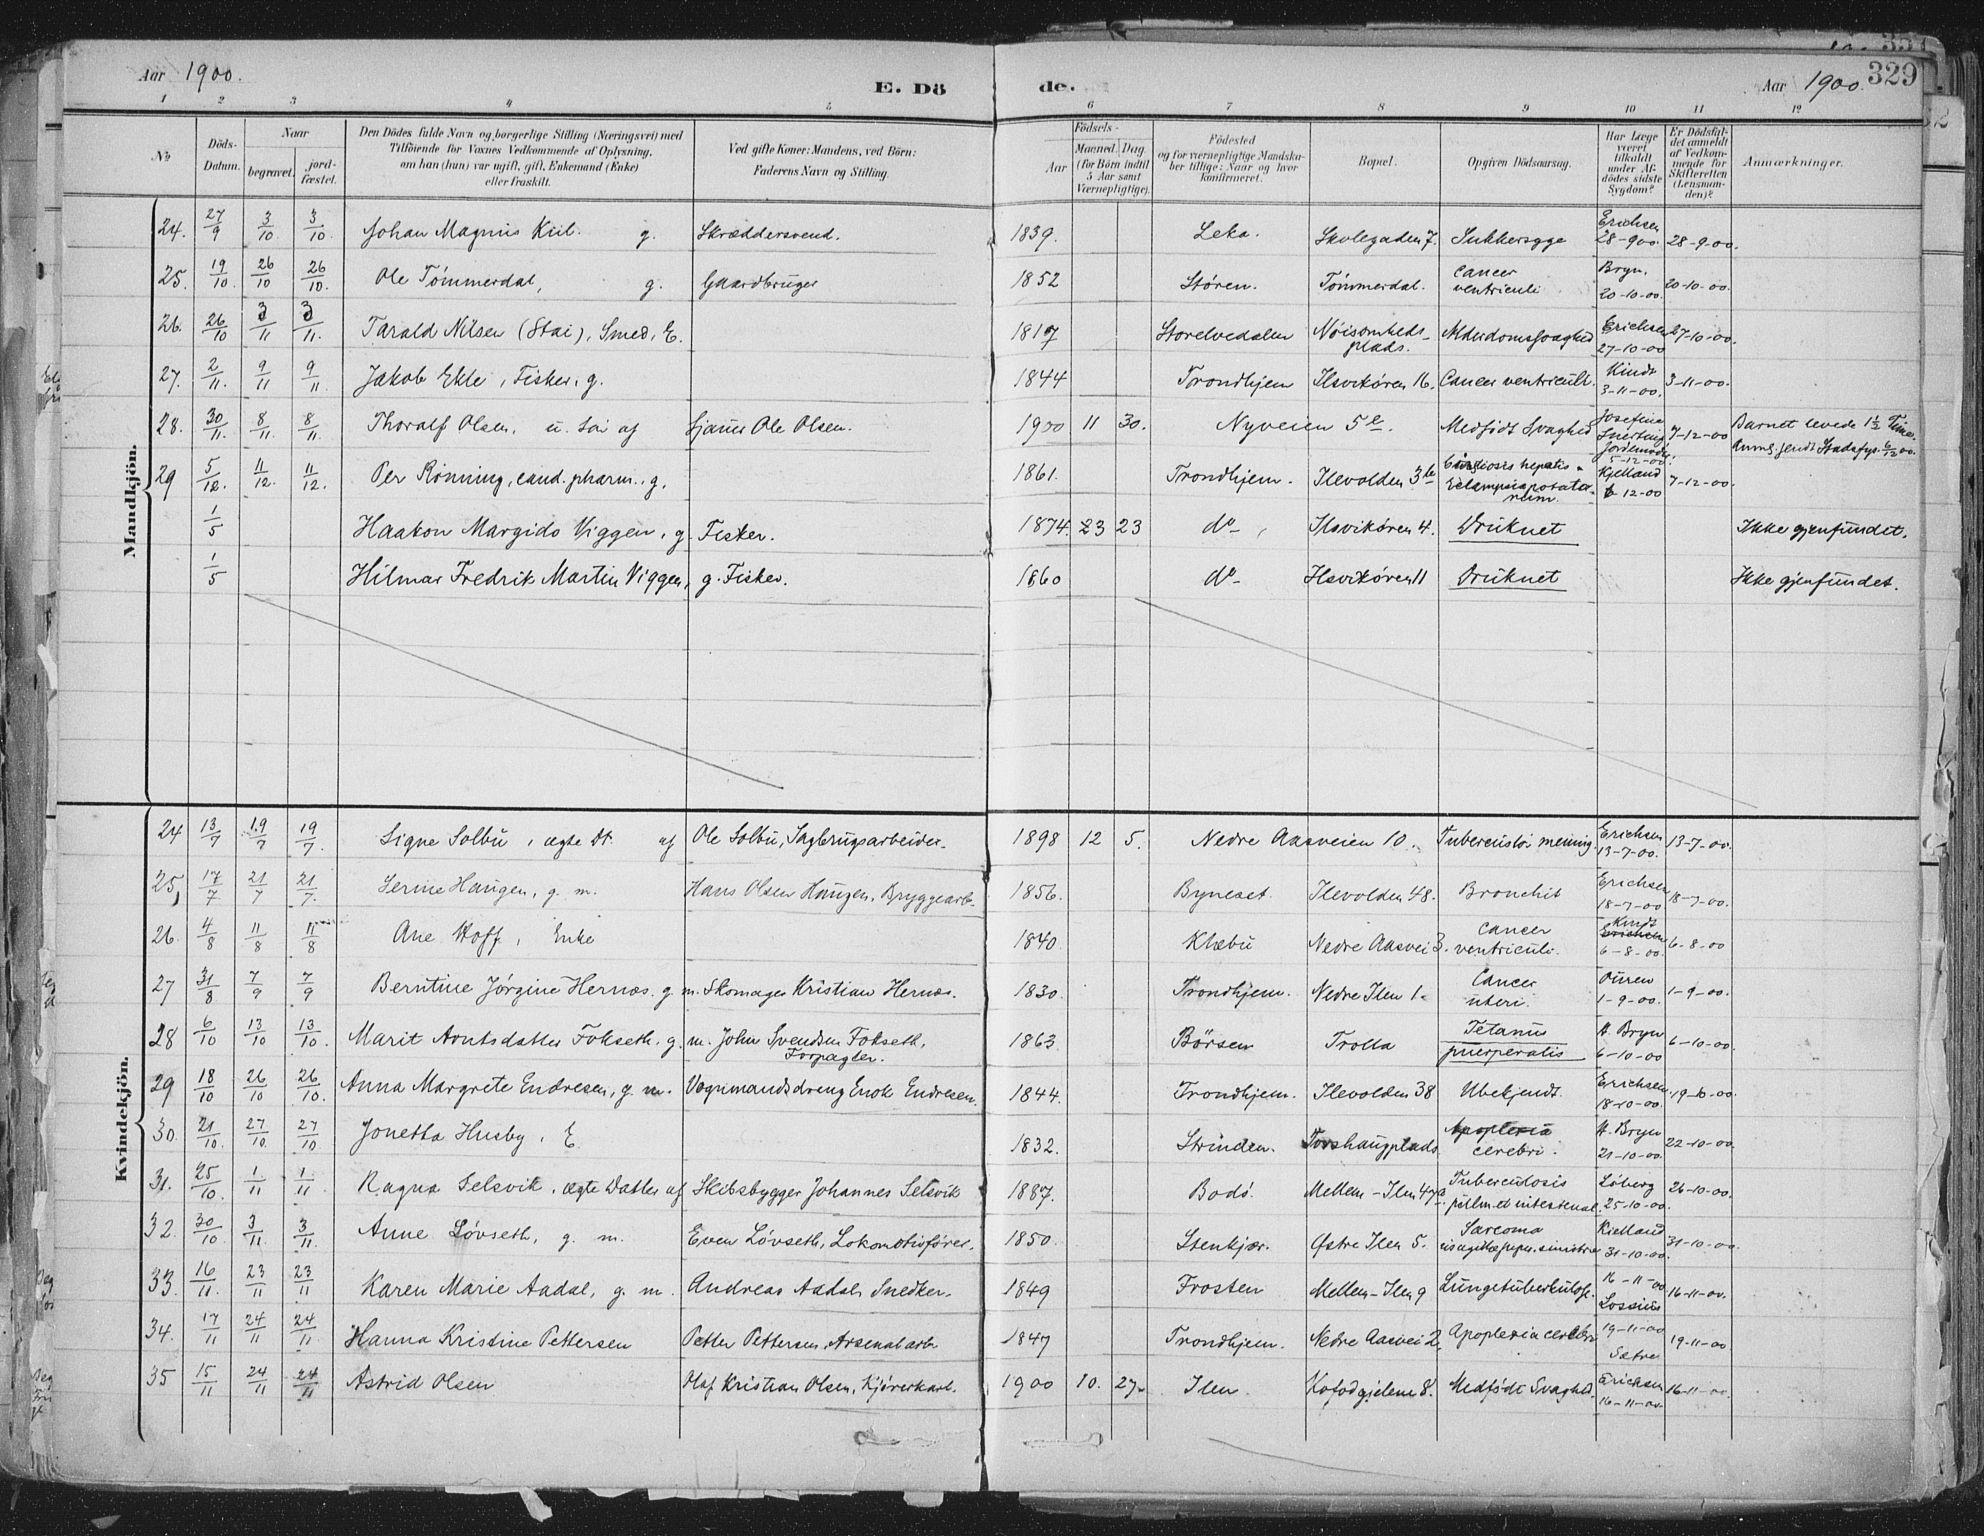 Aar 1900. E. Dö de. Aar 1900. 329
1 2 3 4 5 6 7 8 9 10 11 12
No Döds-Datum. Naar begravet. jord-fæstet. Den Dödes fulde Navn og borgerlige Stilling (Næringsvei) med Tilföiende for Voxnes Vedkommende af Oplysning, om han (hun) var ugift, gift, Enkemand (Enke) eller fraskilt. Ved gifte Koner: Mandens, ved Börn: Faderens Navn og Stilling. Födsels- Aar Maaned. Dag. (for Börn indtil 5 Aar samt Værnepligtige). Födested og for værnepligtige Mandskaber tillige: Naar og hvor konfirmeret. Bopæl. Opgiven Dödsaarsag. Har Læge været tilkaldt under Afdödes sidste Sygdom? Er Dödsfaldet anmeldt af Vedkommende for Skifteretten (Lensmanden)? Anmærkninger.
Mandkjön.
24. 27/9 3/10 3/10. Johan Magnus Kiil. g. Skræddersvend. 1839. Leka. Skolegaden 7. Sukkersyge Erichsen 28-9-00. 28-9-00.
25. 19/10 26/10 26/10. Ole Tömmerdal, g. Gaardbruger 1852 Støren. Tømmerdal. Cancer ventriculi Bryn. 20-10-00. 20-10-00.
26. 26/10 3/11 3/11. Tarald Nilsen (Stai), Smed, E. 1817 Storelvedalen Nøisomheds-plads. Alderdomssvaghed Erichsen 27-10-00 27-10-00.
27. 2/11. 9/11 9/11 Jakob Ekle, Fisker, g. 1844 Trondhjem Ilsvikøren 16. Cancer ventriculi. Kindt 3-11-00. 3-11-00.
28. 30/11. 8/11. 8/11. Thoralf Olsen, u. Søn af Sjauer Ole Olsen. 1900 11 30. Nyveien 5 Medfødt Svaghed Josefine Jordemoder 5-12-00. 7-12-00 Barnet levede 1½ Time.
29 5/12. 11/12. 11/12. Per Rønning, cand. pharm., g. 1861. Trondhjem. Ilevolden 3b Cirrhosis hepatis Kjelland 6-12-00 7-12-00.
1/5 Haakon Margido Viggen, g. Fisker. 1874. 23 23 do Ilsvikøren 4. Druknet Ikke gjenfundet.
1/5 Hilmar Fredrik Martin Viggen, g. Fisker. 1860 do Ilsvikøren 11 Druknet Ikke gjenfundet.
Kvindekjön.
24 13/7 19/7 19/7. Signe Solbu, ægte Dt. af Ole Solbu, Sagbrugsarbeider. 1898 12 5. Nedre Aasveien 10. Tuberculös mening. Erichsen 13-7-00. 13-7-00.
25, 17/7 21/7 21/7. Serine Haugen, g. m. Hans Olsen Haugen, Bryggearb. 1856. Bynesset. Ilevolden 48. Bronchit Erichsen 18-7-00 18-7-00.
26. 4/8 11/8 11/8 Ane Hoff, Enke 1840. Klæbu Nedre Aasvei 3. Cancer ventriculi. Kindt 6-8-00. 6-8-00
27 31/8 7/9 7/9 Berntine Jørgine Hernæs. g. m. Skomager Kristian Hernæs. 1830. Trondhjem. Nedre Ilen 1. Cancer uteri. Ouren 1-9-00. 1-9-00.
28 6/10 13/10 13/10. Marit Arntsdatter Fokseth, g. m. John Svendsen Fokseth, Forpagter. 1863. Børsen Trolla Tetanus puerperalis H. Bryn 6-10-00 6-10-00.
29 18/10 26/10 26/10. Anna Margrete Endresen, g. m. Vognmandsdreng Enok Endresen. 1844. Trondhjem. Ilevolden 38 Ubekjendt. Erichsen 18-10-00. 19-10-00.
30. 21/10. 27/10. 27/10 Jonetta Husby, E 1832. Strinden. Torshaugplads Apoplexia cerebri. H. Bryn 21-10-00. 22-10-00.
31. 25/10. 1/11 1/11 Ragna Selsvik, ægte Datter af Skibsbygger Johannes Selsvik 1887. Bodø. Mellem-Ilen 47a. Tuberculosis pulm. et intestenal. Löberg 25-10-00. 26-10-00.
32. 30/10. 3/11. 3/11. Anne Løvseth, g. m. Even Løvseth, Lokomotivfører. 1850. Stenkjær. Østre Ilen 5. Sarcoma Kielland 31-10-00. 31-10-00.
33. 16/11. 23/11 23/11 Karen Marie Aadal, g. m. Andreas Aadal, Snedker. 1849 Frosten Mellem-Ilen 9 Lungetuberkulose. 16-11-00 Lossius 16-11-00.
34. 17/11 24/11 24/11 Hanna Kristine Pettersen Petter Pettersen, Arsenalarb. 1847 Trondhjem. Nedre Aasvei 2, Apoplexia cerebri 19-11-00 Sætre 19-11-00
35 15/11 24/11 24/11 Astrid Olsen Olaf Kristian Olsen, Kjørerkarl. 1900 10. 27. Ilen. Kofodgjelene 8. Medfødt Svaghed. Erichsen 16-11-00. 16-11-00.